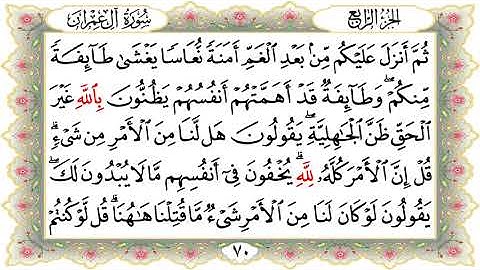 سُورَةُ آلِ عِمْرَانَ الجُزْءُ الرَّابِعُ
ثُمَّ أَنزَلَ عَلَيْكُم مِّنۢ بَعْدِ الْغَمِّ أَمَنَةً نُّعَاسًا يَغْشَىٰ طَآئِفَةً
مِّنكُمْ ۖ وَطَآئِفَةٌ قَدْ أَهَمَّتْهُمْ أَنفُسُهُمْ يَظُنُّونَ بِاللَّهِ غَيْرَ
الْحَقِّ ظَنَّ الْجَٰهِلِيَّةِ ۖ يَقُولُونَ هَل لَّنَا مِنَ الْأَمْرِ مِن شَىْءٍ ۗ
قُلْ إِنَّ الْأَمْرَ كُلَّهُۥ لِلَّهِ ۗ يُخْفُونَ فِىٓ أَنفُسِهِم مَّا لَا يُبْدُونَ لَكَ ۖ
يَقُولُونَ لَوْ كَانَ لَنَا مِنَ الْأَمْرِ شَىْءٌ مَّا قُتِلْنَا هَٰهُنَا ۗ قُل لَّوْ كُنتُمْ
٧٠